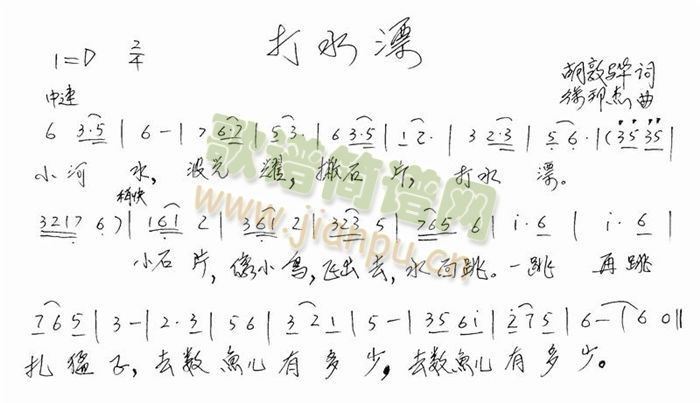 打水漂
1=D 2/4
胡敦骅 词
中速
曲
6 3·5 | 6 - | 7 6·7 | 5 3· | 6 3·5 | 1 2· | 3 2·3 | 5 6· | (35 35 |
小河 水, 波光 耀, 撒石 片, 打水 漂。
稍快
3217 6) | 161 2 | 361 2 | 323 5 | 765 6 | i·6 | i·6 |
小石片, 像小鸟, 飞出去, 水面跳。一跳 再跳
765 | 3 - | 2·3 | 56 | 321 | 5 - | 356i | i75 | 6 - | 6 0 ‖
扎猛子, 去数鱼儿有多少, 去数鱼儿有多少。
歌谱简谱网
www.jianpu.cn